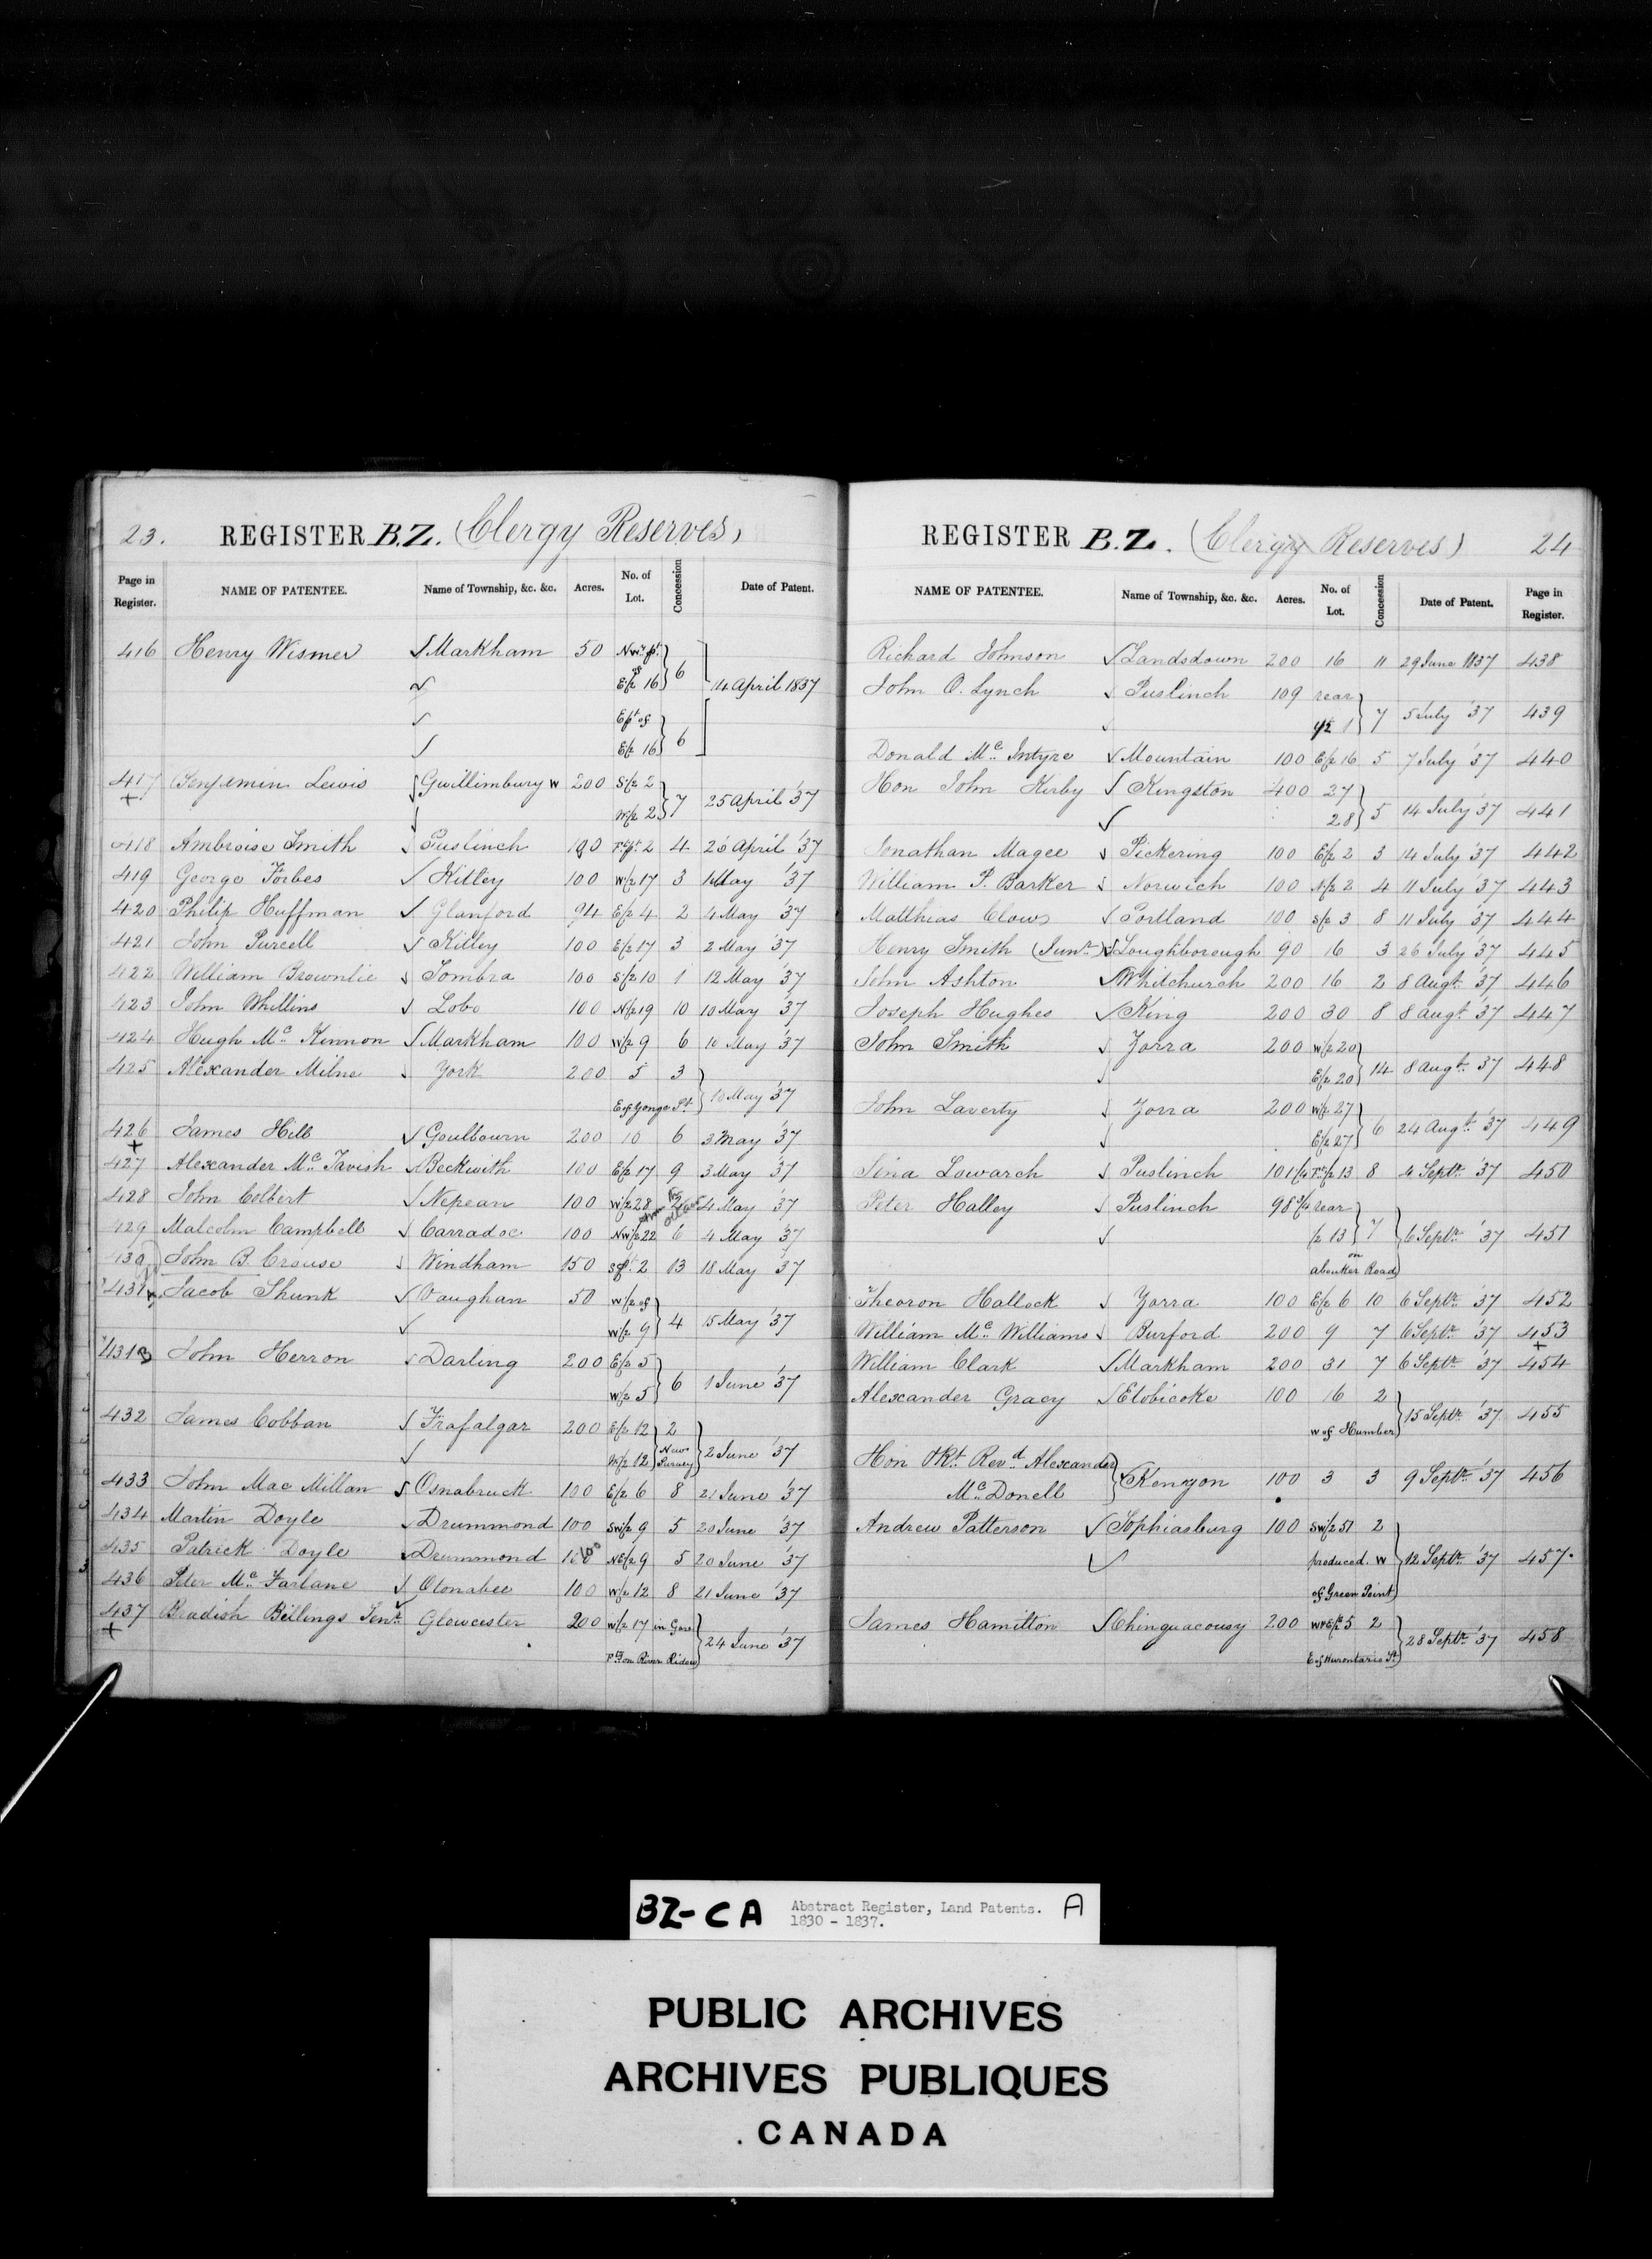 23. REGISTER B.Z. (Clergy Reserves)
Page in Register. NAME OF PATENTEE. Name of Township, &c. &c. Acres. No. of Lot. Concession Date of Patent.
416 Henry Wismer √ Markham 50 Nw. pt. of
√ E/2 16 } 6 14 April 1837
√ E/pt of
√ E/2 16 } 6
417 Benjamin Lewis √ Gwillimbury W 200 S/2 2
+ √ N/2 2 } 7 25 April '37
418 Ambroise Smith √ Puslinch 100 2 4 26 April '37
419 George Forbes √ Kitley 100 W/2 17 3 1 May '37
420 Philip Huffman √ Glanford 94 E/2 4 2 4 May '37
421 John Purcell √ Kitley 100 E/2 17 3 2 May '37
422 William Brownlie √ Sombra 100 S/2 10 1 12 May '37
423 John Whillins √ Lobo 100 N/2 19 10 10 May '37
424 Hugh Mc. Kinnon √ Markham 100 W/2 9 6 10 May '37
425 Alexander Milne √ York 200 5 3
E of Yonge St. } 10 May '37
426 James Hill √ Goulbourn 200 10 6 3 May '37
+
427 Alexander Mc. Tavish √ Beckwith 100 E/2 17 9 3 May '37
428 John Colbert √ Nepean 100 W/2 28 4 May '37
429 Malcolm Campbell √ Carradoc 100 NW/2 22 6 4 May '37
430 John B. Crouse √ Windham 150 S/pt. 2 13 18 May '37
431 A Jacob Shunk √ Vaughan 50 W/2 of
√ W/2 9 } 4 15 May '37
431 B John Herron √ Darling 200 E/2 5
W/2 5 } 6 1 June '37
432 James Cobban √ Trafalgar 200 E/2 12 2
√ W/2 12 New Survey } 2 June '37
433 John Mac Millan √ Osnabruck 100 E/2 6 8 21 June '37
434 Martin Doyle √ Drummond 100 SW/2 9 5 20 June '37
435 Patrick Doyle √ Drummond 100 NE/2 9 5 20 June '37
436 Peter Mc. Farlane √ Otonabee 100 W/2 12 8 21 June '37
437 Braddish Billings Senr. √ Gloucester 200 W/2 17 in Gore
+ Ft. on River Rideau } 24 June '37
REGISTER B.Z. (Clergy Reserves) 24
NAME OF PATENTEE. Name of Township, &c. &c. Acres. No. of Lot. Concession Date of Patent. Page in Register.
Richard Johnson √ Landsdown 200 16 11 29 June 1837 438
John O. Lynch √ Puslinch 109 rear
√ 1/2 1 } 7 5 July '37 439
Donald Mc. Intyre √ Mountain 100 E/2 16 5 7 July '37 440
Hon John Kirby √ Kingston 400 27
√ 28 } 5 14 July '37 441
Jonathan Magee √ Pickering 100 E/2 2 3 14 July '37 442
William P. Barker √ Norwich 100 N/2 2 4 11 July '37 443
Matthias Clows √ Portland 100 S/2 3 8 11 July '37 444
Henry Smith (Junr.) √ Loughborough 90 16 3 26 July '37 445
John Ashton √ Whitchurch 200 16 2 8 Augt. '37 446
Joseph Hughes √ King 200 30 8 8 Augt. '37 447
John Smith √ Zorra 200 W/2 20
√ E/2 20 } 14 8 Augt. '37 448
John Laverty √ Zorra 200 W/2 27
√ E/2 27 } 6 24 Augt. '37 449
Lowarch √ Puslinch 101 1/4 13 8 4 Septr. '37 450
Peter Halley √ Puslinch 98 3/4 rear
√ /2 13 } 7 6 Septr. '37 451
on
abenker Road
Theoron Hallock √ Zorra 100 E/2 6 10 6 Septr. '37 452
William Mc. Williams √ Burford 200 9 7 6 Septr. '37 453
+
William Clark √ Markham 200 31 7 6 Septr. '37 454
Alexander Gracy √ Etobicoke 100 16 2
W of Humber } 15 Septr. '37 455
Hon & Rt. Revd. Alexander
Mc. Donell } √ Kenyon 100 3 3 9 Septr. '37 456
Andrew Patterson √ Sophiasburg 100 SW/2 51 2
√ produced. W } 12 Septr. '37 457.
of Green Point
James Hamilton √ Chinguacousy 200 5 2
E of Hurontario St. } 28 Septr. '37 458
BZ-CA Abstract Register, Land Patents. A
1830 - 1837.
PUBLIC ARCHIVES
ARCHIVES PUBLIQUES
CANADA